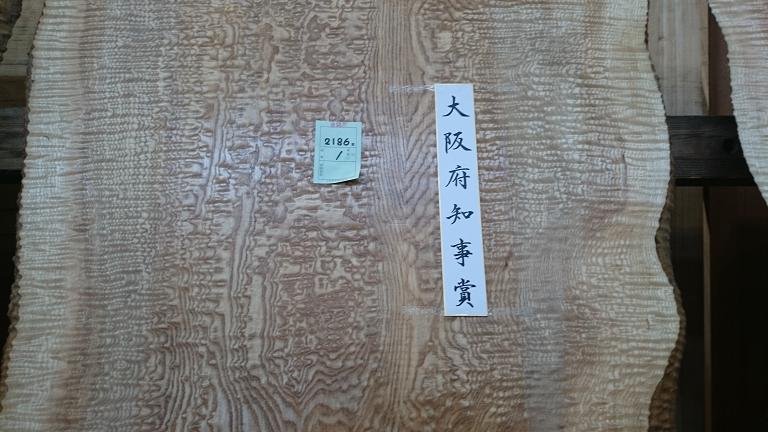 大阪府知事賞
2186
1